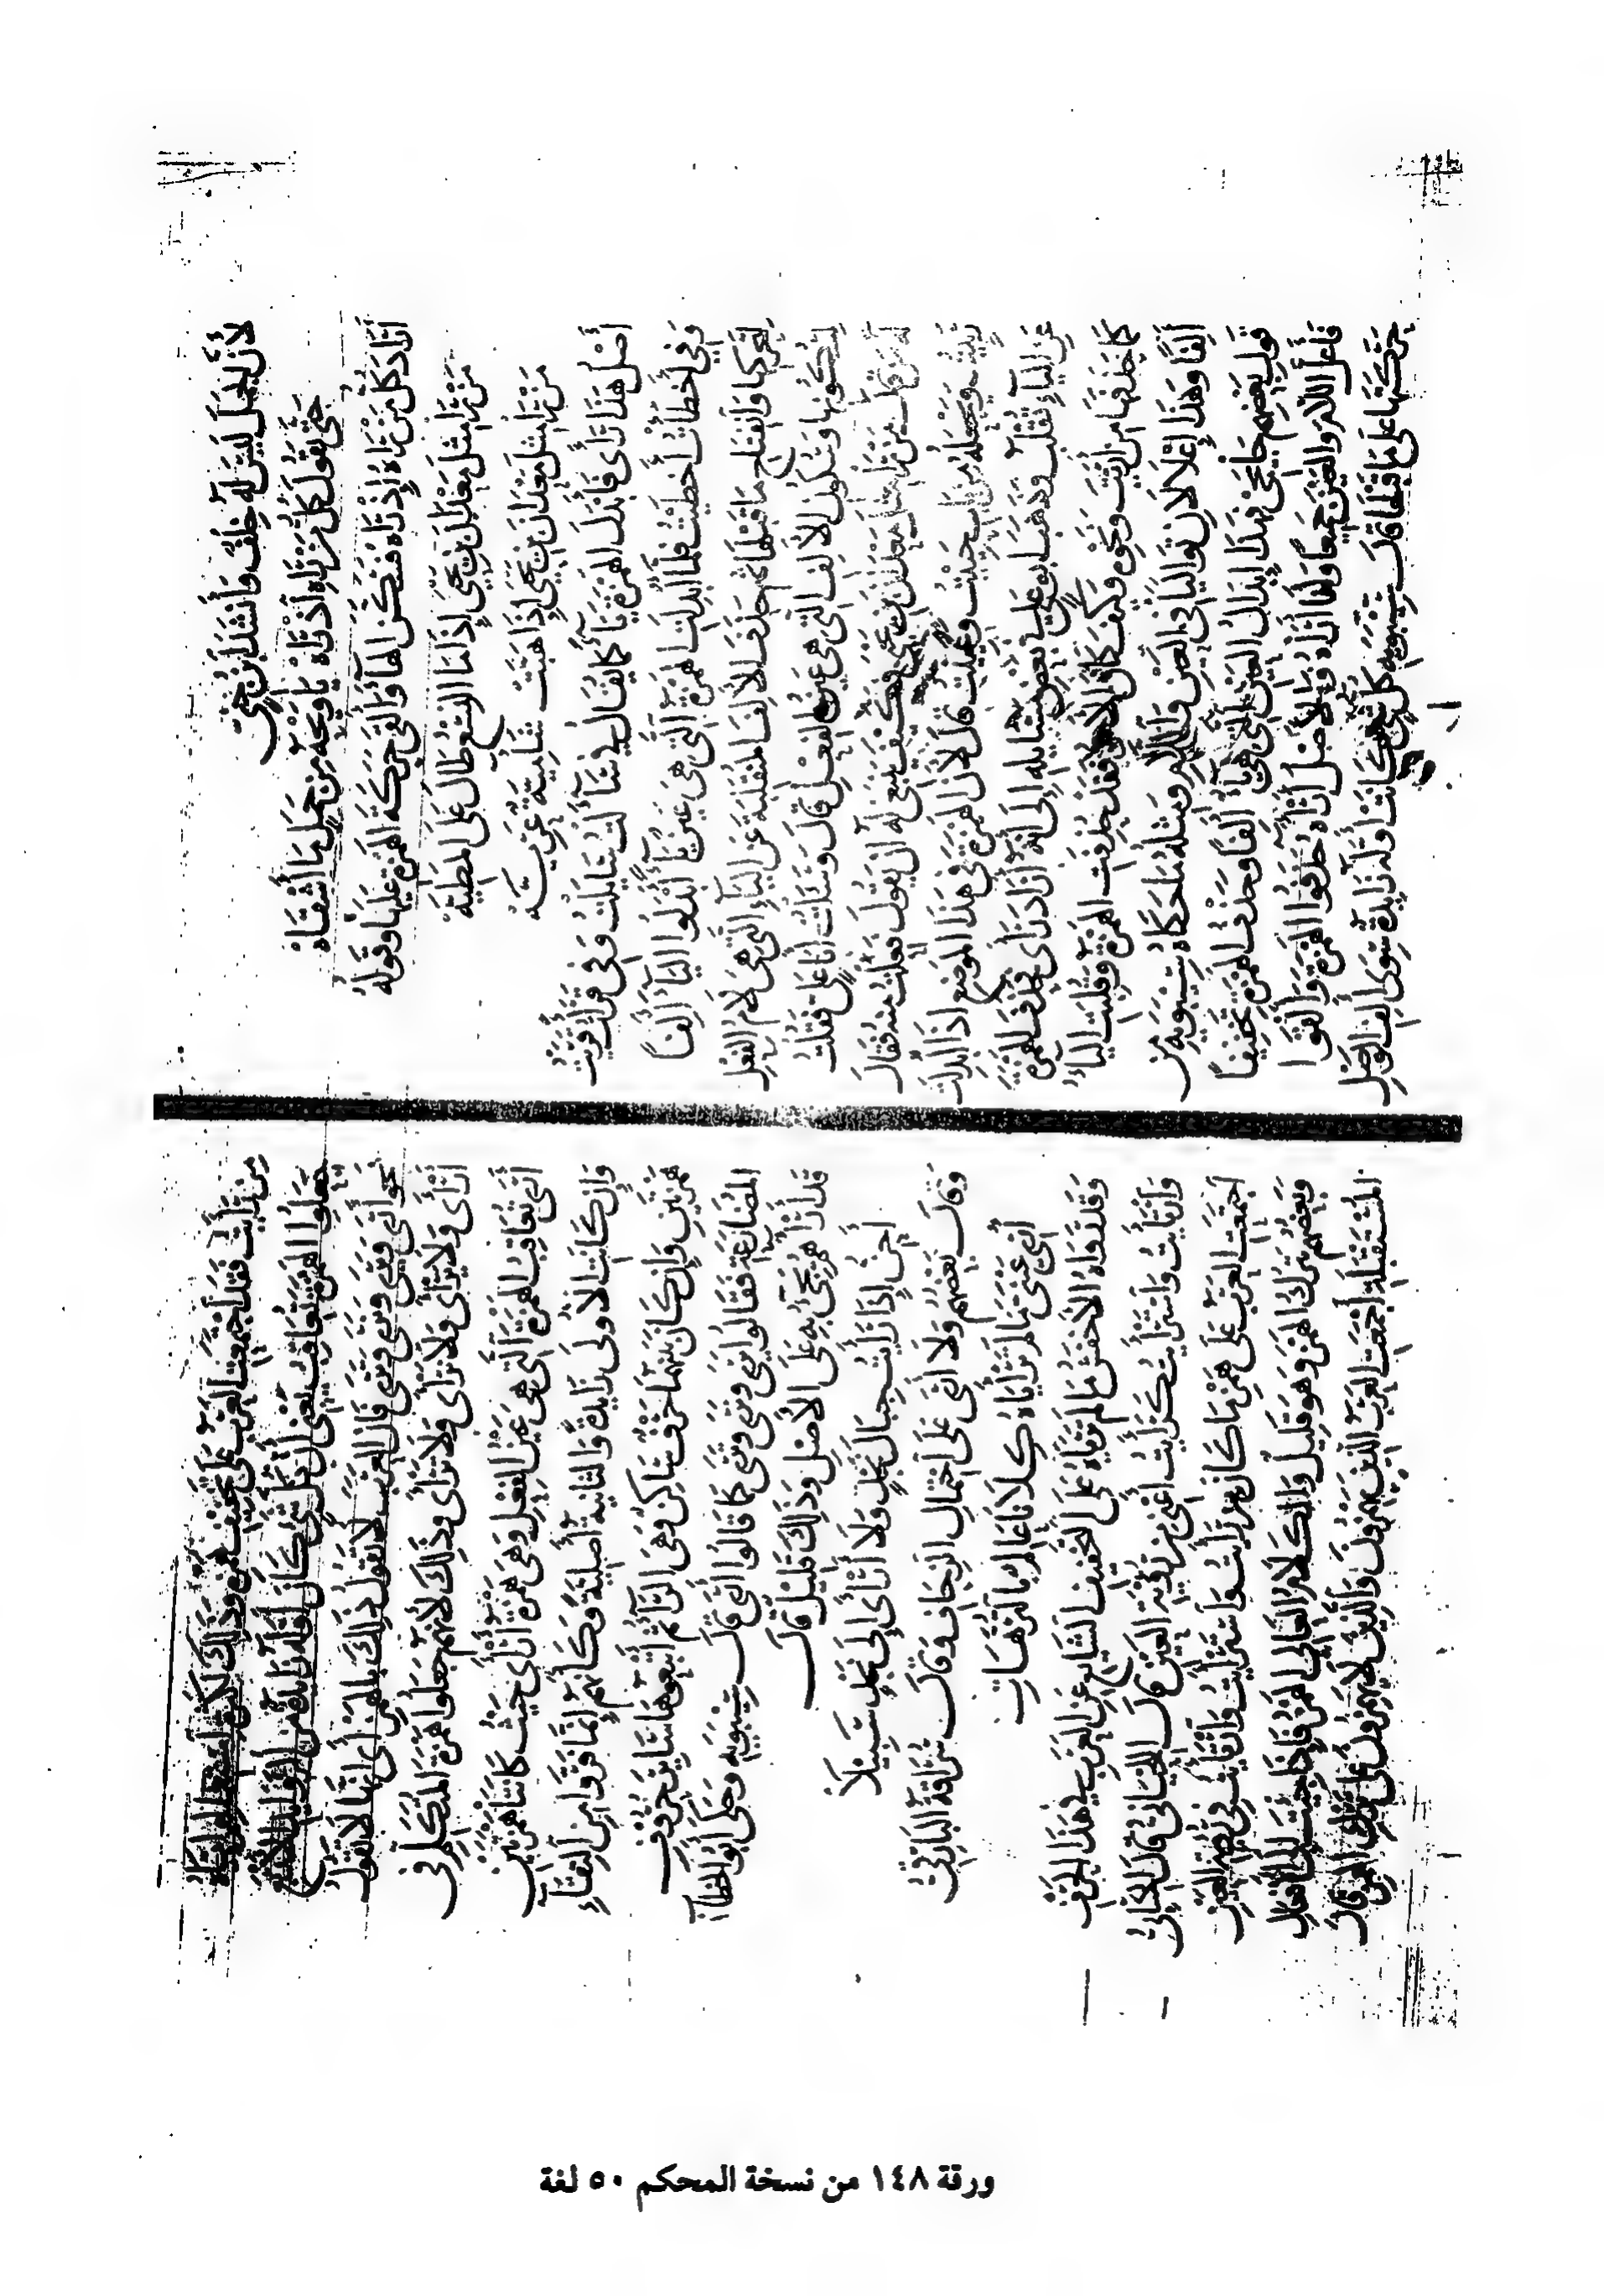 لأن الجمل ليس له خلف وأنشد ابن جني
حتى يقول كل من رآه اذ رآه يا ويحه من جمل ما أشقاه
أراد كل من رآه إذ رآه فسكن الهاء وألقى حركة الهمزة عليها وقوله
من را مثل معدان بن يحيى إذا ما النسع طال على المطية
من را مثل معدان بن يحيى إذا هبت شآمية عرية
أصل هذا رأى فأبدل الهمزة ياء كما يقال في سآءلت سايلت وفي قرأت قريت
وفي أخطأت أخطيت فلما أبدلت الهمزة التي هي عين ياء أبدلوا الياء ألفا
لتحركها وانفتاح ما قبلها ثم حذف الألف المنقلبة عن الياء التي هي لام الفعل
لسكونها وسكون الألف التي هي عين الفعل قال وسألت أبا علي فقلت
له من قال من را مثل معدان بن يحيى فكيف ينبغي له أن يقول فعلت منه فقال
رييت ويجعله من باب حييت وعييت قال لأن الهمزة في هذا الموضع اذا أبدلت
عن الياء تقلب وذهب أبو علي في بعض مسائله إلى أنه أراد رأى فحذف الهمزة
كما حذفها من أريت ونحوه وكيف كان الأمر فقد حذفت الهمزة وقلبت الياء
ألفا وهذا إعلالان تواليا في العين واللام ومثله ما حكاه سيبويه من
قول بعضهم جا يجي فهذا إبدال العين التي هي ياء ألفا وحذف الهمزة تخفيفا
فأعل اللام والعين جميعا وأنا أرأه والأصل أرآه حذفوا الهمزة وألقوا
حركتها على ما قبلها قال سيبويه كل شيء كانت أوله زائدة سوى ألف الوصل
من رأيت فقد اجتمعت العرب على تخفيف همزه وذلك لكثرة استعمالهم إياه
جعلوا الهمزة تعاقب يعني أن كل شيء كان أوله زائدة من الزوائد الأربع
نحو أرى وترى ونرى ويرى فإن العرب لا تقول ذلك بالهمز أي أنها لا تقول
أرأى ولا يرأى ولا نرأى ولا ترأى وذلك لأنهم جعلوا همزة المتكلم في
أرى تعاقب الهمزة التي هي عين الفعل وهي همزة أرأى حيث كانتا همزتين
وإن كانت الأولى زايدة والثانية أصلية وكأنهم إنما فروا من التقاء
همزتين وإن كان بينهما حرف ساكن وهي الراء ثم أتبعوها ساير حروف
المضارعة فقالوا يرى ونرى وترى كما قالوا أرى قال سيبويه وحكى أبو الخطاب
قد أرآهم يجيء به على الأصل وذلك قليل قال
أحن إذا رأيت جبال نجد ولا أرأى إلى نجد سبيلا
وقال بعضهم ولا أرى على احتمال الزحاف وقال سراقة البارقي
أري عيني ما لم ترأياه كلانا عالم بالترهات
وقد رواه الأخفش ما لم ترياه على التخفيف الشايع عن العرب في هذا الحرف
وارتأيت واسترأيت كرأيت أعني من رؤية العين قال اللحياني قال الكسائي
أجمعت العرب على همز ما كان من رأيت واسترأيت وارتأيت في رؤية العين
وبعضهم يترك الهمز وهو قليل والكلام العالي الهمز فإذا جئت إلى الأفعال
المستقبلة أجمعت العرب الذين يهمزون والذين لا يهمزون على ترك الهمز قال
ورقة ١٤٨ من نسخة المحكم ٥٠ لغة